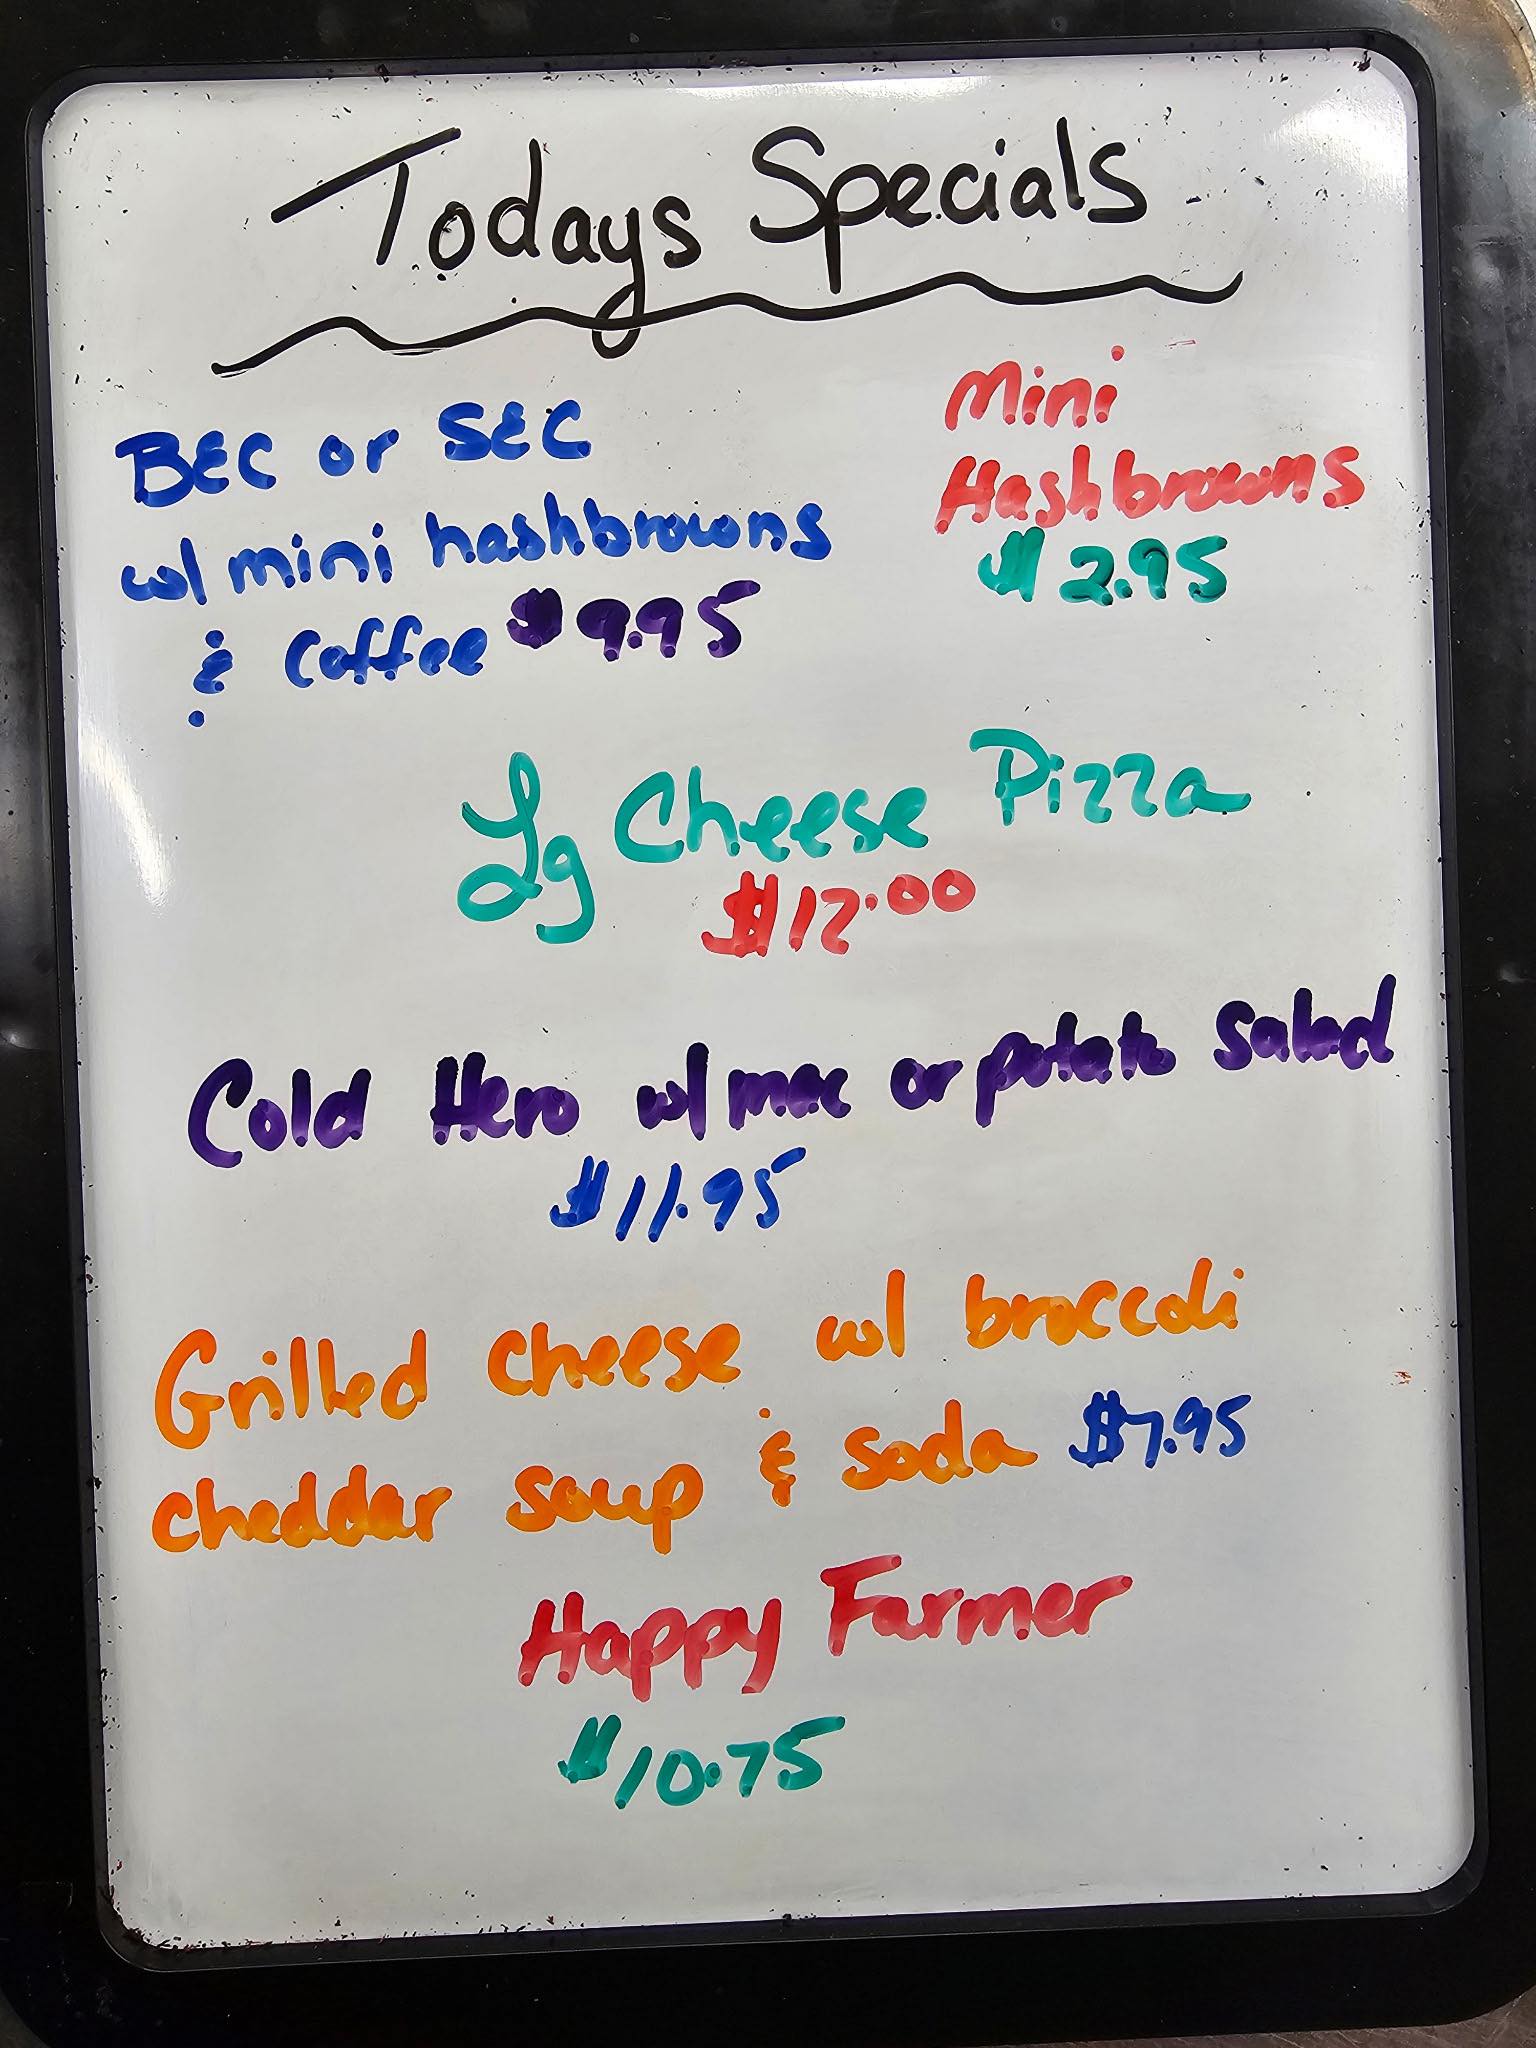 Todays Specials
BEC or SEC
w/ mini hashbrowns
& Coffee $9.95
Mini
Hashbrowns
$2.95
Lg Cheese Pizza
$12.00
Cold Hero w/ mac or potato Salad
$11.95
Grilled cheese w/ broccoli
cheddar soup & soda $7.95
Happy Farmer
$10.75